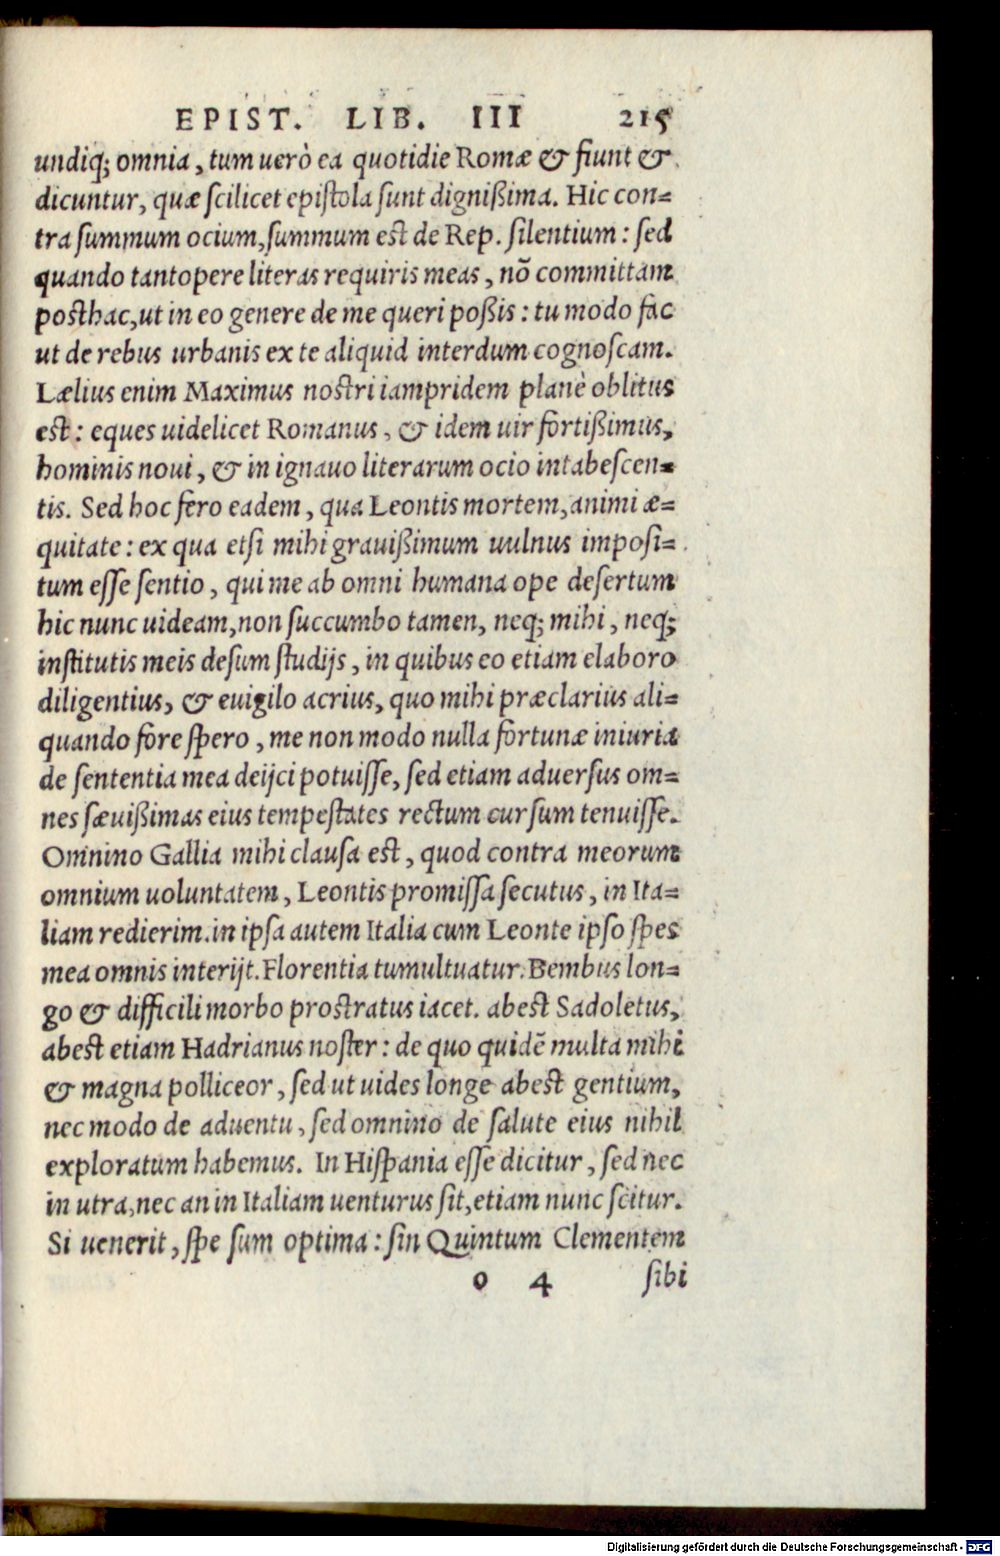 EPIST. LIB. III 215
undiq; omnia, tum uerò ea quotidie Romæ & fiunt &
dicuntur, quæ scilicet epistola sunt dignißima. Hic con=
tra summum ocium, summum est de Rep. silentium: sed
quando tantopere literas requiris meas, nõ committam
posthac, ut in eo genere de me queri poßis: tu modo fac
ut de rebus urbanis ex te aliquid interdum cognoscam.
Lælius enim Maximus nostri iampridem planè oblitus
est: eques uidelicet Romanus, & idem uir fortißimus,
hominis noui, & in ignauo literarum ocio intabescen=
tis. Sed hoc fero eadem, qua Leontis mortem, animi æ=
quitate: ex qua etsi mihi grauißimum uulnus imposi=
tum esse sentio, qui me ab omni humana ope desertum
hic nunc uideam, non succumbo tamen, neq; mihi, neq;
institutis meis desum studijs, in quibus eo etiam elaboro
diligentius, & euigilo acrius, quo mihi præclarius ali=
quando fore spero, me non modo nulla fortunæ iniuria
de sententia mea deijci potuisse, sed etiam aduersus om=
nes sæuißimas eius tempestates rectum cursum tenuisse.
Omnino Gallia mihi clausa est, quod contra meorum
omnium uoluntatem, Leontis promissa secutus, in Ita=
liam redierim. in ipsa autem Italia cum Leonte ipso spes
mea omnis interijt. Florentia tumultuatur. Bembus lon=
go & difficili morbo prostratus iacet. abest Sadoletus,
abest etiam Hadrianus noster: de quo quidẽ multa mihi
& magna polliceor, sed ut uides longe abest gentium,
nec modo de aduentu, sed omnino de salute eius nihil
exploratum habemus. In Hispania esse dicitur, sed nec
in utra, nec an in Italiam uenturus sit, etiam nunc scitur.
Si uenerit, spe sum optima: sin Quintum Clementem
o 4 sibi
Digitalisierung gefördert durch die Deutsche Forschungsgemeinschaft - DFG